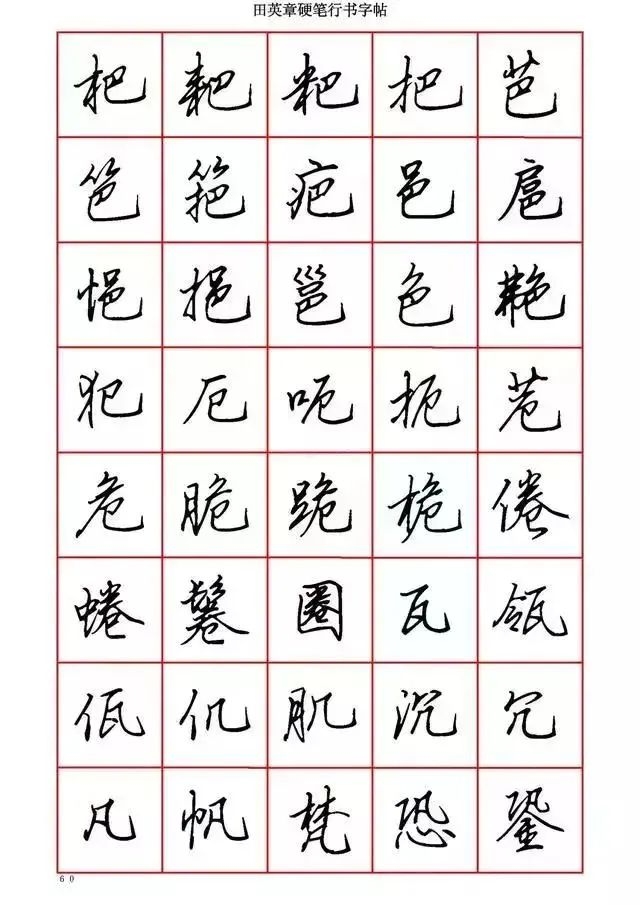 田英章硬笔行书字帖
杷 耙 粑 把 芭
笆 筢 疤 邑 扈
悒 挹 邕 色 艳
犯 厄 呃 扼 苊
危 脆 跪 桅 倦
蜷 鬈 圈 瓦 瓴
佤 仉 肌 沉 冗
凡 帆 梵 恐 銎
60